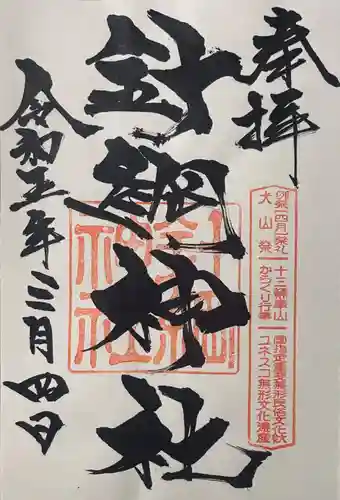 奉拝
針綱神社
令和五年三月四日
針綱
神社
例祭(四月)祭礼
犬山祭
十三輌車山
からくり行事
国指定重要無形民俗文化財
ユネスコ無形文化遺産